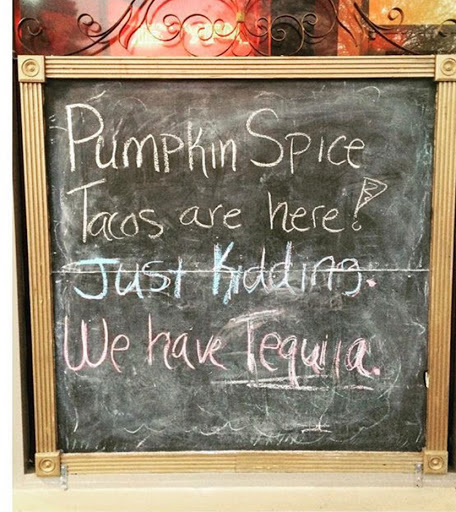 Pumpkin Spice
Tacos are here!
Just Kidding.
We have Tequila.